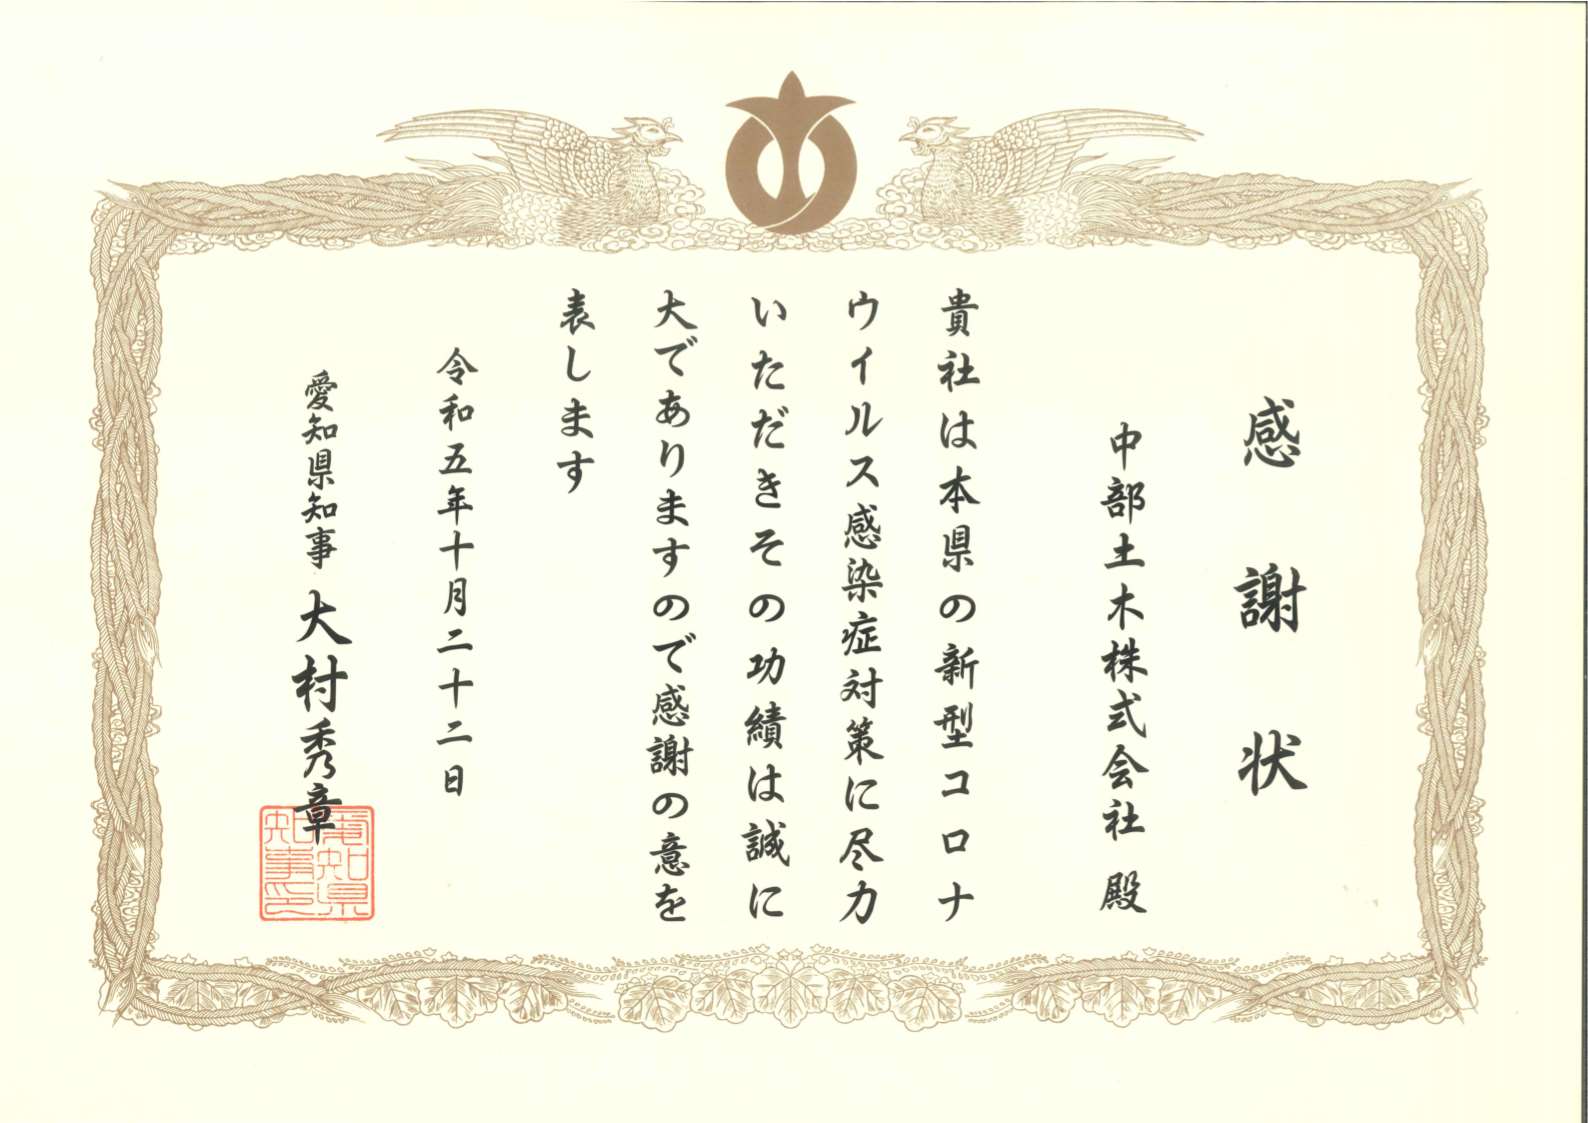 感謝状
中部土木株式会社 殿
貴社は本県の新型コロナ
ウイルス感染症対策に尽力
いただきその功績は誠に
大でありますので感謝の意を
表します
令和五年十月二十二日
愛知県知事 大村秀章
愛知県
知事印